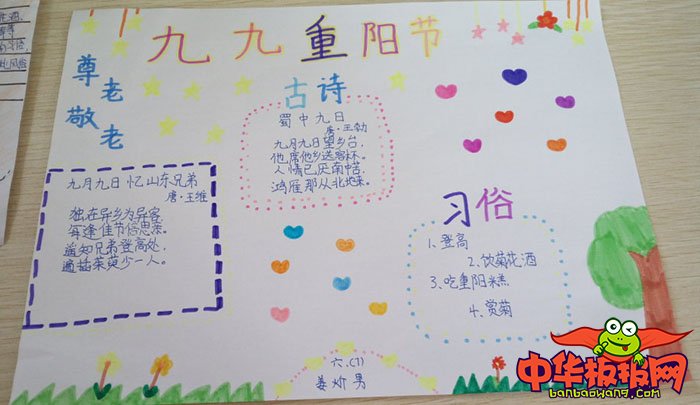 九九重阳节
尊老
敬老
古诗
蜀中九日
唐·王勃
九月九日望乡台,
他席他乡送客杯。
人情已厌南中苦,
鸿雁那从北地来。
九月九日忆山东兄弟
唐·王维
独在异乡为异客
每逢佳节倍思亲。
遥知兄弟登高处,
遍插茱萸少一人。
习俗
1、登高
2、饮菊花酒
3、吃重阳糕
4、赏菊
六、(1)
中华板报网
banbaowang.com